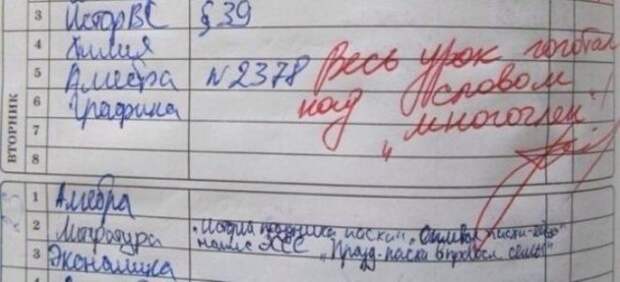 3 Истор ВС § 39
4 Химия
5 Алгебра N 2378
6 Графика
7
8
ВТОРНИК
Весь урок гоготал
над словом
„многочлен"!
1 Алгебра
2 Литература
3 Экономика
напис ЭССЕ